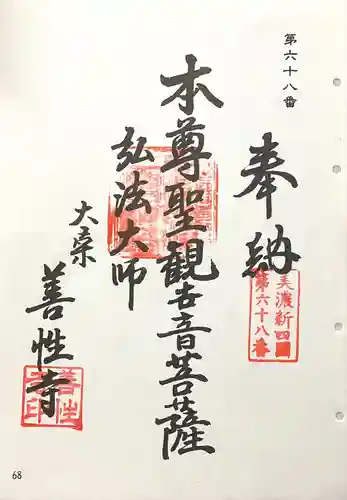 第六十八番
奉納
美濃新四国
第六十八番
本尊聖観世音菩薩
弘法大師
善性寺
善性
寺印
68